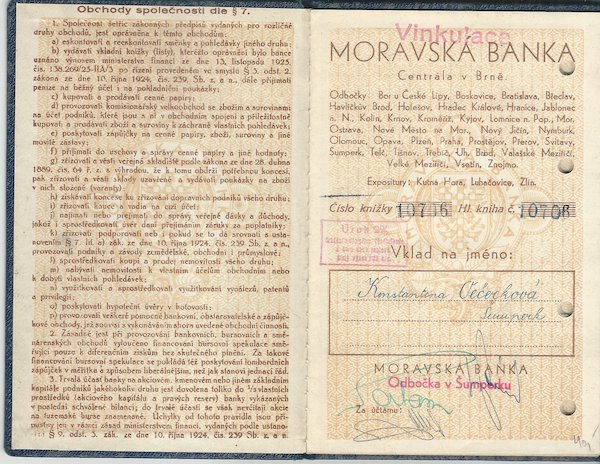 Obchody společnosti dle § 7.
1. Společnost šetříc zákonných předpisů vydaných pro rozličné
druhy obchodů, jest oprávněna k těmto obchodům:
a) eskontovati a reeskontovati směnky a pohledávky jiného druhu;
b) vydávati vkladní knížky (listy), kterážto oprávnění bylo bance
uzýváno výnosem ministerstva financí ze dne 13. listopadu 1925,
čís. 138.269/25-IIA/3 po řízení provedeném ve smyslu § 3. odst. 2.
zákona ze dne 10. října 1924, čís. 239. Sb. z. a n., dále přijímati
peníze na běžný účet i na pokladniční poukázky;
c) kupovati a prodávati cenné papíry;
d) provozovati komisionářský velkoobchod se zbožím a surovinami
na účet podniků, které jsou s ní v obchodním spojení a příležitostně
kupovati a prodávati zboží a suroviny k záchraně vlastních pohledávek;
e) poskytovati zápůjčky na cenné papíry, zboží, suroviny a jiné
movité zástavy;
f) přijímati do úschovy a správy cenné papíry a jiné hodnoty;
g) zřizovati a vésti veřejná skladiště podle zákona ze dne 28. dubna
1889, čís. 64, ř. z. s výhradou, že k tomu obdrží potřebnou koncesi,
pak zřizovati a vésti sklady uzavřené a vydávati poukázky na zboží
v nich složené (varanty);
h) získávati koncese ku zřizování dopravních podniků všeho druhu;
i) zřizovati kauce a vadia na cizí účet;
j) najímati nebo přejímati do správy veřejné dávky a důchody,
jakož i sprostředkovati úvěr daní přejímáním záruky za poplatníky;
k) provozovati podporovati neb i pokud se to dá srovnati s usta-
novením § 7. lit. a) zák. ze dne 10. října 1924, čís. 239 Sb. z. a n.,
provozovati podniky a závody zemědělské, obchodní i průmyslové;
l) sprostředkovati koupi a prodej nemovitostí všeho druhu;
m) nabývati nemovitostí k vlastním účelům obchodním nebo
k dobytí vlastních pohledávek;
n) využitkovati a sprostředkovati využitkování vynálezů, patentů
a privilegií;
o) poskytovati hypoteční úvěry v hotovosti;
p) provozovati veškeré pomocné bankovní, obstaravatelské a zápůjč-
kové obchody, jež souvisí s vykonáváním shora uvedené obchodní činnosti.
2. Zásadně jest při provozování bankovních, bursovních a smě-
nárenských obchodů vyloučeno financování bursovní spekulace smě-
řující pouze k diferenčním ziskům bez skutečného plnění. Za takové
financování bursovní spekulace se pokládá též poskytování lombardních
zápůjček v měřítku a způsobem liberálnějším, než jak stanoví jednací řád.
3. Trvalá účast banky na akciovém, kmenovém nebo jiném základním
kapitále podniků jakéhokoliv druhu jest dovolena toliko do ⅓ vlastních
prostředků (akciového kapitálu a pravých reserv) banky vykázaných
v poslední schválené bilanci; do trvalé účasti se však nevčítají akcie
na tuzemské burse znamenané. Úchylky od tohoto pravidla jsou pří-
pustny jen v rámci zásad ministerstvem financí, vydaných podle usta-
novení § 9. odst. 3. zák. ze dne 10. října 1924, čís. 239 Sb. z. a n.
Vinkulace
MORAVSKÁ BANKA
Centrála v Brně.
Odbočky: Bor u České Lípy, Boskovice, Bratislava, Břeclav,
Havlíčkův Brod, Holešov, Hradec Králové, Hranice, Jablonec
n. N., Kolín, Krnov, Kroměříž, Kyjov, Lomnice n. Pop., Mor.
Ostrava, Nové Město na Mor., Nový Jičín, Nymburk,
Olomouc, Opava, Plzeň, Praha, Prostějov, Přerov, Svitavy,
Šumperk, Telč, Tišnov, Třebíč, Uh. Brod, Valašské Meziříčí,
Velké Meziříčí, Vsetín, Znojmo.
Expositury: Kutná Hora, Luhačovice, Zlín.
Číslo knížky 10706 Hl. kniha č. 10706
Úrok
Vklad na jméno:
Konstantina Večerková
Šumperk
MORAVSKÁ BANKA
Odbočka v Šumperku
Za účtárnu: